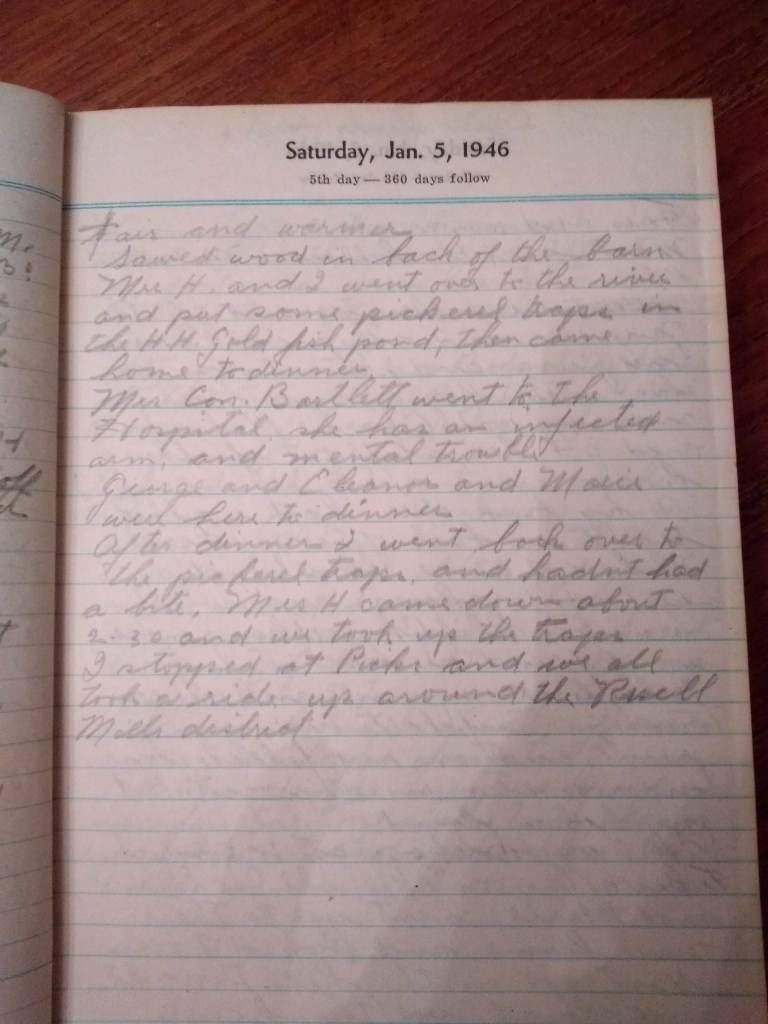 Saturday, Jan. 5, 1946
5th day — 360 days follow
Fair and warmer
Sawed wood in back of the barn
Mrs H. and I went over to the river
and put some pickerel traps in
the H.H. Gold fish pond, then came
home to dinner,
Mrs Con. Bartlett went to the
Hospital, she has an infected
arm, and mental trouble
George and Eleanor and Marie
were here to dinner
After dinner I went back over to
the pickerel traps, and hadn't had
a bite, Mrs H came down about
2-30 and we took up the traps
I stopped at Picks and we all
took a ride up around the
Mills district